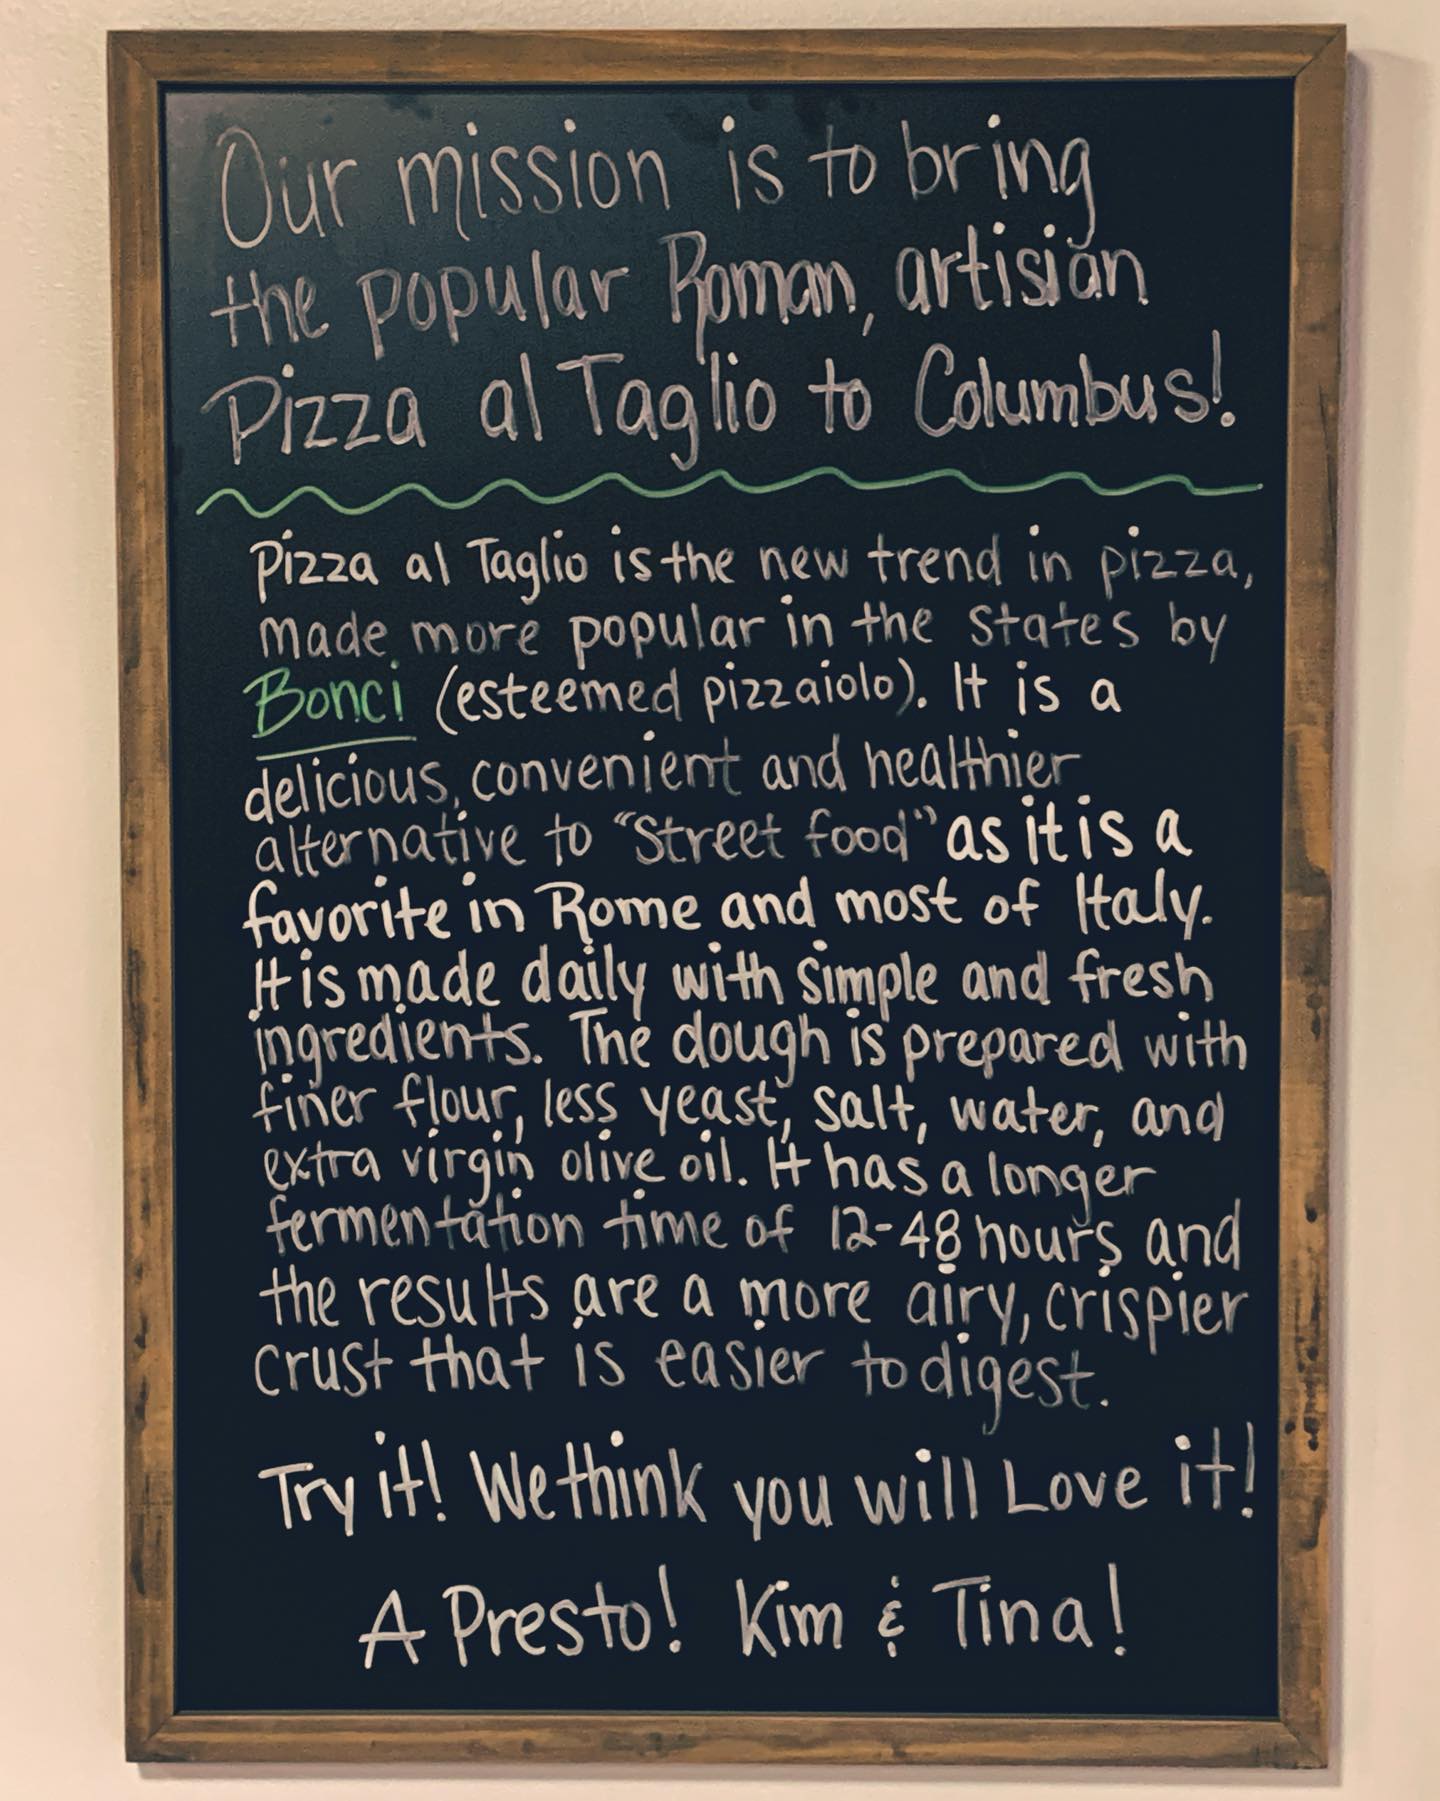 Our mission is to bring
the popular Roman, artisian
Pizza al Taglio to Columbus!
Pizza al Taglio is the new trend in pizza,
made more popular in the states by
Bonci (esteemed pizzaiolo). It is a
delicious, convenient and healthier
alternative to "Street food" as it is a
favorite in Rome and most of Italy.
It is made daily with simple and fresh
ingredients. The dough is prepared with
finer flour, less yeast, salt, water, and
extra virgin olive oil. It has a longer
fermentation time of 12-48 hours and
the results are a more airy, crispier
crust that is easier to digest.
Try it! We think you will Love it!
A Presto! Kim & Tina!